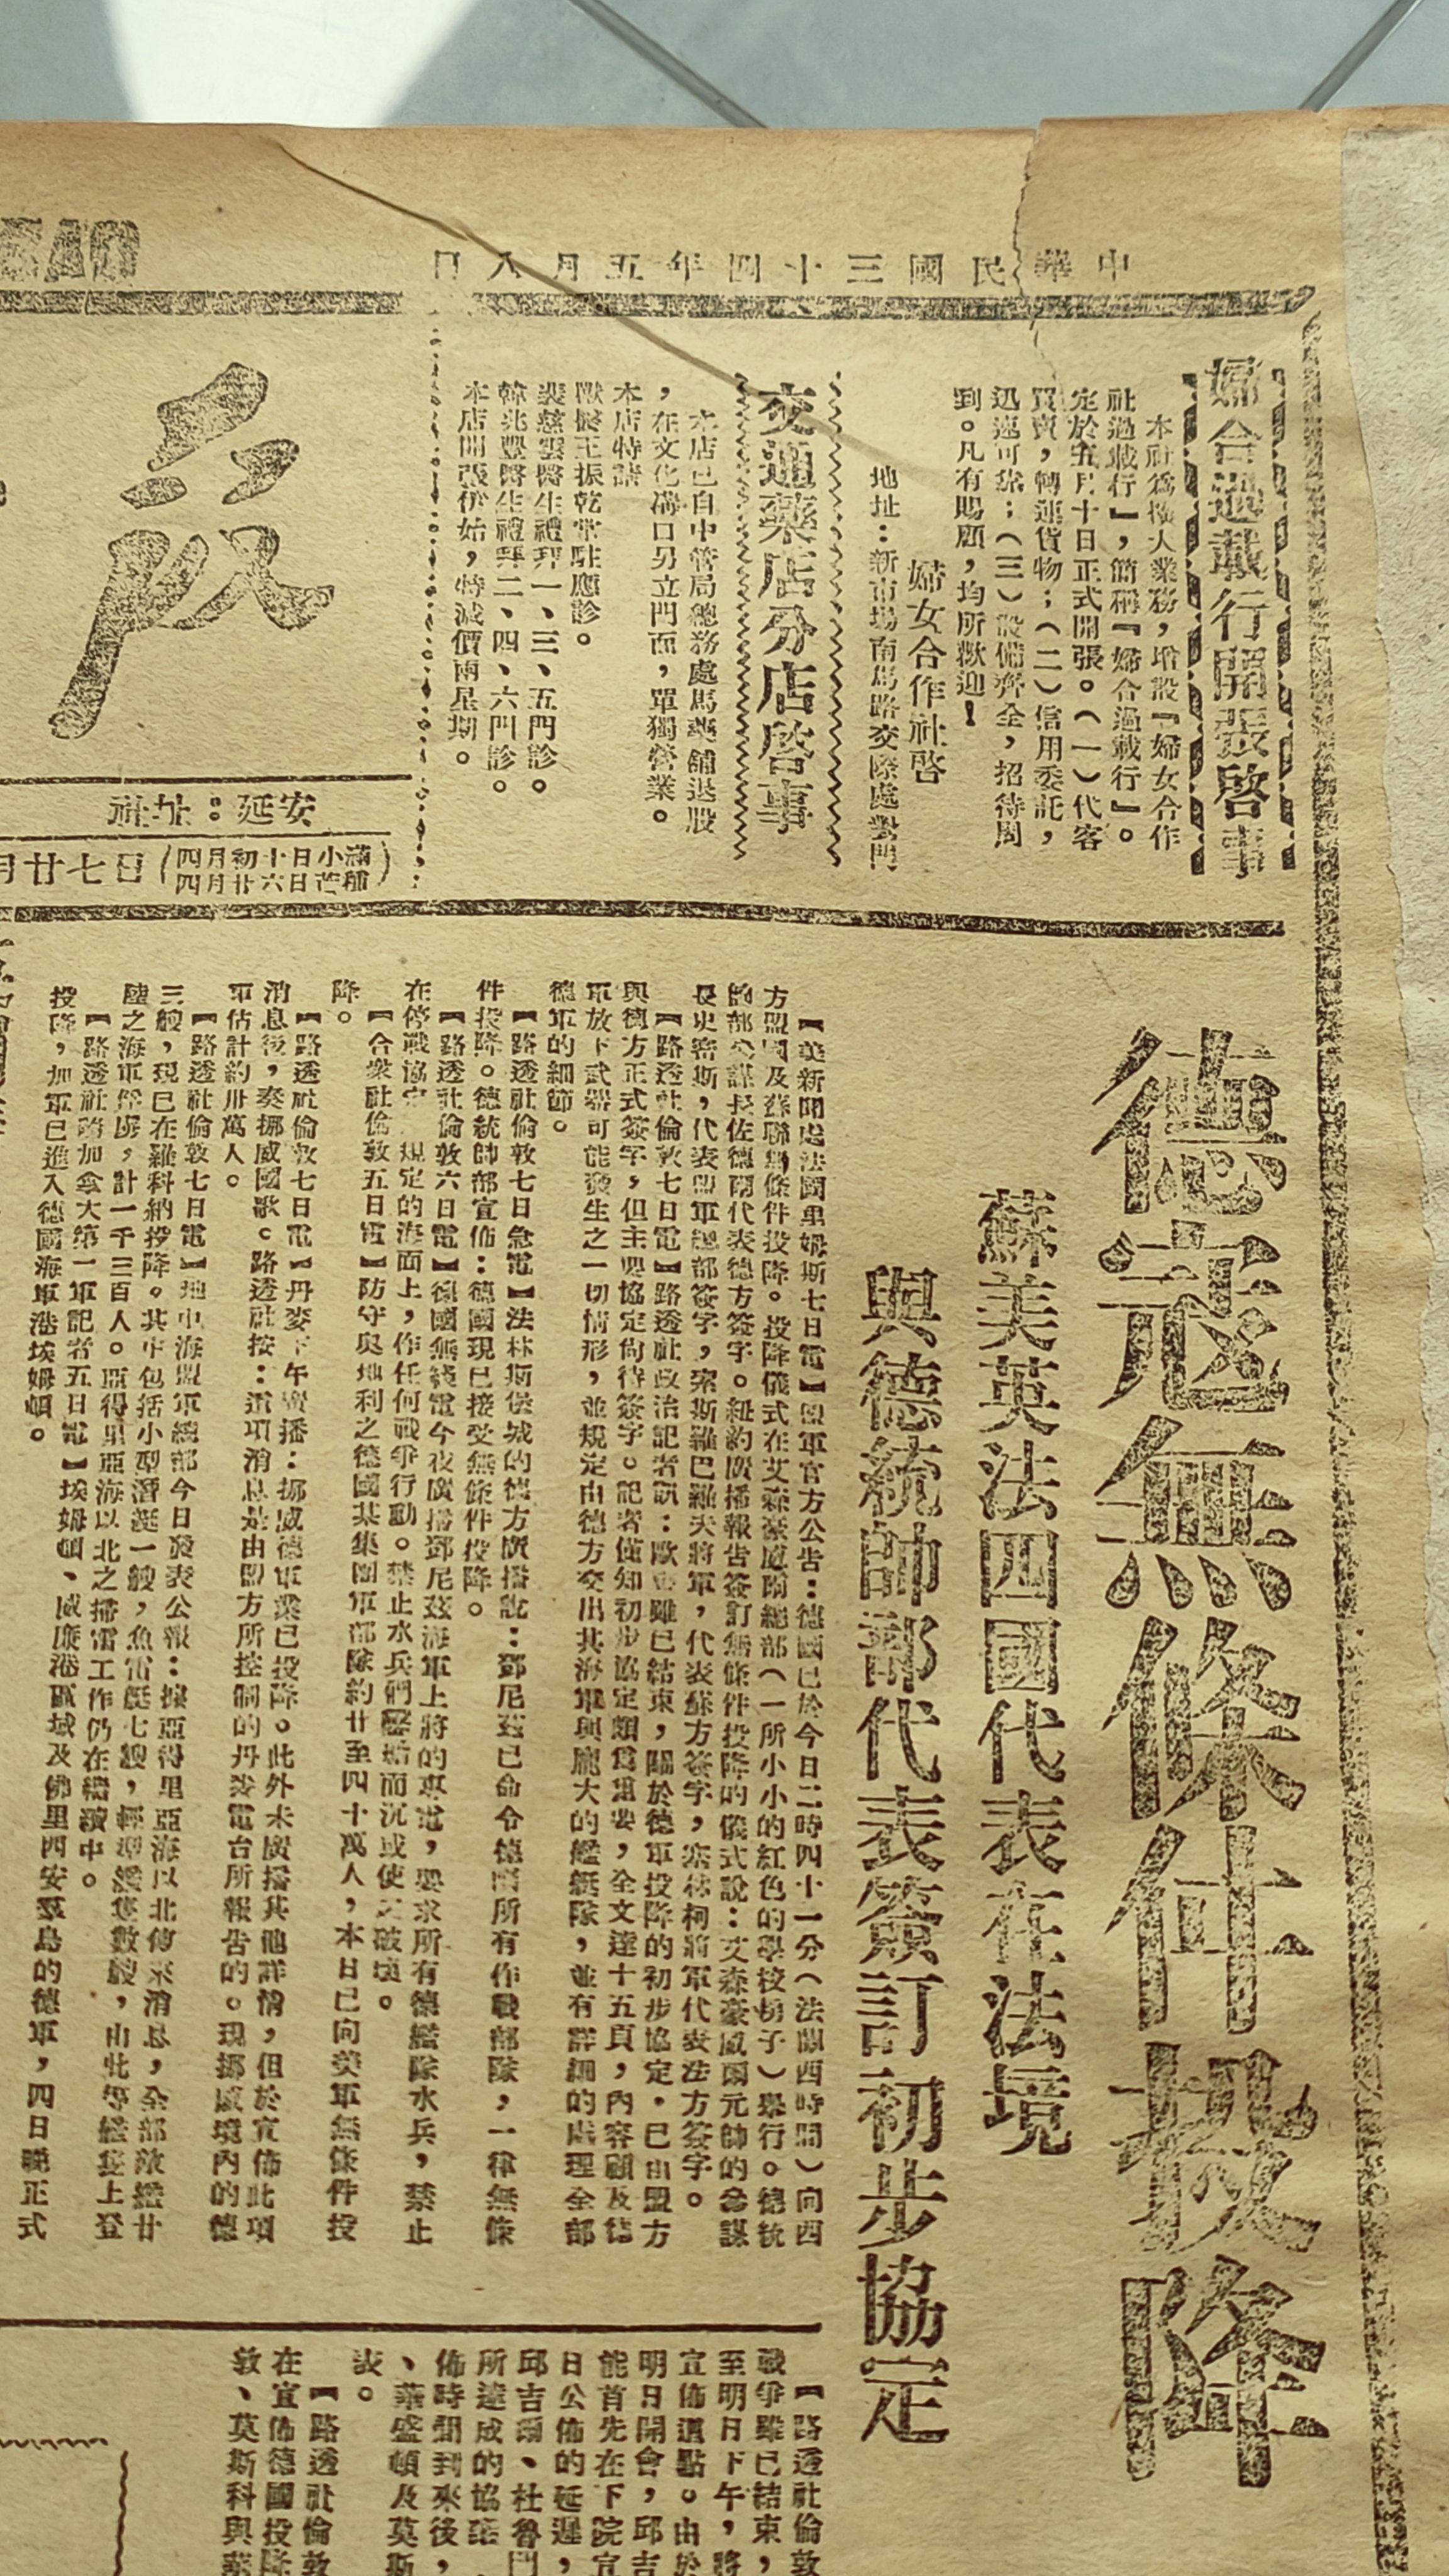 中華民國三十四年五月八日
婦合過載行開張啓事
本社為擴大業務，增設『婦女合作
社過載行』，簡稱『婦合過載行』。
定於五月十日正式開張。（一）代客
買賣，轉運貨物；（二）信用委託，
迅速可靠；（三）設備齊全，招待周
到。凡有賜顧，均所歡迎！
婦女合作社啓
地址：新市場南馬路交際處對門
交通藥店分店啓事
本店已自中管局總務處馬藥舖退股
，在文化溝口另立門面，單獨營業。
本店特請
獸醫王振乾常駐應診。
裴慈雲醫生禮拜一、三、五門診。
韓兆豐醫生禮拜二、四、六門診。
本店開張伊始，特減價兩星期。
社址：延安
月廿七日（四月初十日小滿
四月廿六日芒種）
德寇無條件投降
蘇美英法四國代表在法境
與德統帥部代表簽訂初步協定
【美新聞處法國里姆斯七日電】盟軍官方公告：德國已於今日二時四十一分（法蘭西時間）向西
方盟國及蘇聯無條件投降。投降儀式在艾森豪威爾總部（一所小小的紅色的學校房子）舉行。德統
帥部參謀長佐德爾代表德方簽字。紐約廣播報告簽訂無條件投降的儀式說：艾森豪威爾元帥的參謀
長史密斯，代表盟軍總部簽字，索斯羅巴羅夫將軍，代表蘇方簽字，塞林柯將軍代表法方簽字。
【路透社倫敦七日電】路透社政治記者訊：歐戰雖已結束，關於德軍投降的初步協定，已由盟方
與德方正式簽字，但主要協定尚待簽字。記者僅知初步協定頗為重要，全文達十五頁，內容顧及德
軍放下武器可能發生之一切情形，並規定由德方交出其海軍與龐大的艦艇隊，並有詳細的處理全部
德軍的細節。
【路透社倫敦七日急電】法林斯堡城的德方廣播說：鄧尼茲已命令德國所有作戰部隊，一律無條
件投降。德統帥部宣佈：德國現已接受無條件投降。
【路透社倫敦六日電】德國無綫電今夜廣播鄧尼茲海軍上將的專電，要求所有德艦隊水兵，禁止
在停戰協定規定的海面上，作任何戰爭行動。禁止水兵們鑿船而沉或使之破壞。
【合衆社倫敦五日電】防守奧地利之德國某集團軍部隊約廿至四十萬人，本日已向美軍無條件投
降。
【路透社倫敦七日電】丹麥下午廣播：挪威德軍業已投降。此外未廣播其他詳情，但於宣佈此項
消息後，奏挪威國歌。路透社按：這項消息是由盟方所控制的丹麥電台所報告的。現挪威境內的德
軍估計約卅萬人。
【路透社倫敦七日電】地中海盟軍總部今日發表公報：據亞得里亞海以北傳來消息，全部敵艦廿
三艘，現已在羅科納投降。其中包括小型潛艇一艘，魚雷艇七艘，輕型艦隻數艘，由此等艦隻上登
陸之海軍俘虜，計一千三百人。亞得里亞海以北之掃雷工作仍在繼續中。
【路透社隨加拿大第一軍記者五日電】埃姆頓、威廉港區域及佛里西安羣島的德軍，四日晚正式
投降，加軍已進入德國海軍港埃姆頓。
【路透社倫敦
戰爭雖已結束，
至明日下午，將
宣佈這點。由於
明日開會，邱吉
能首先在下院宣
日公佈的延遲，
邱吉爾、杜魯門
所達成的協議
佈時間到來後，
、華盛頓及莫斯
表。
【路透社倫敦
在宣佈德國投降
敦、莫斯科與華